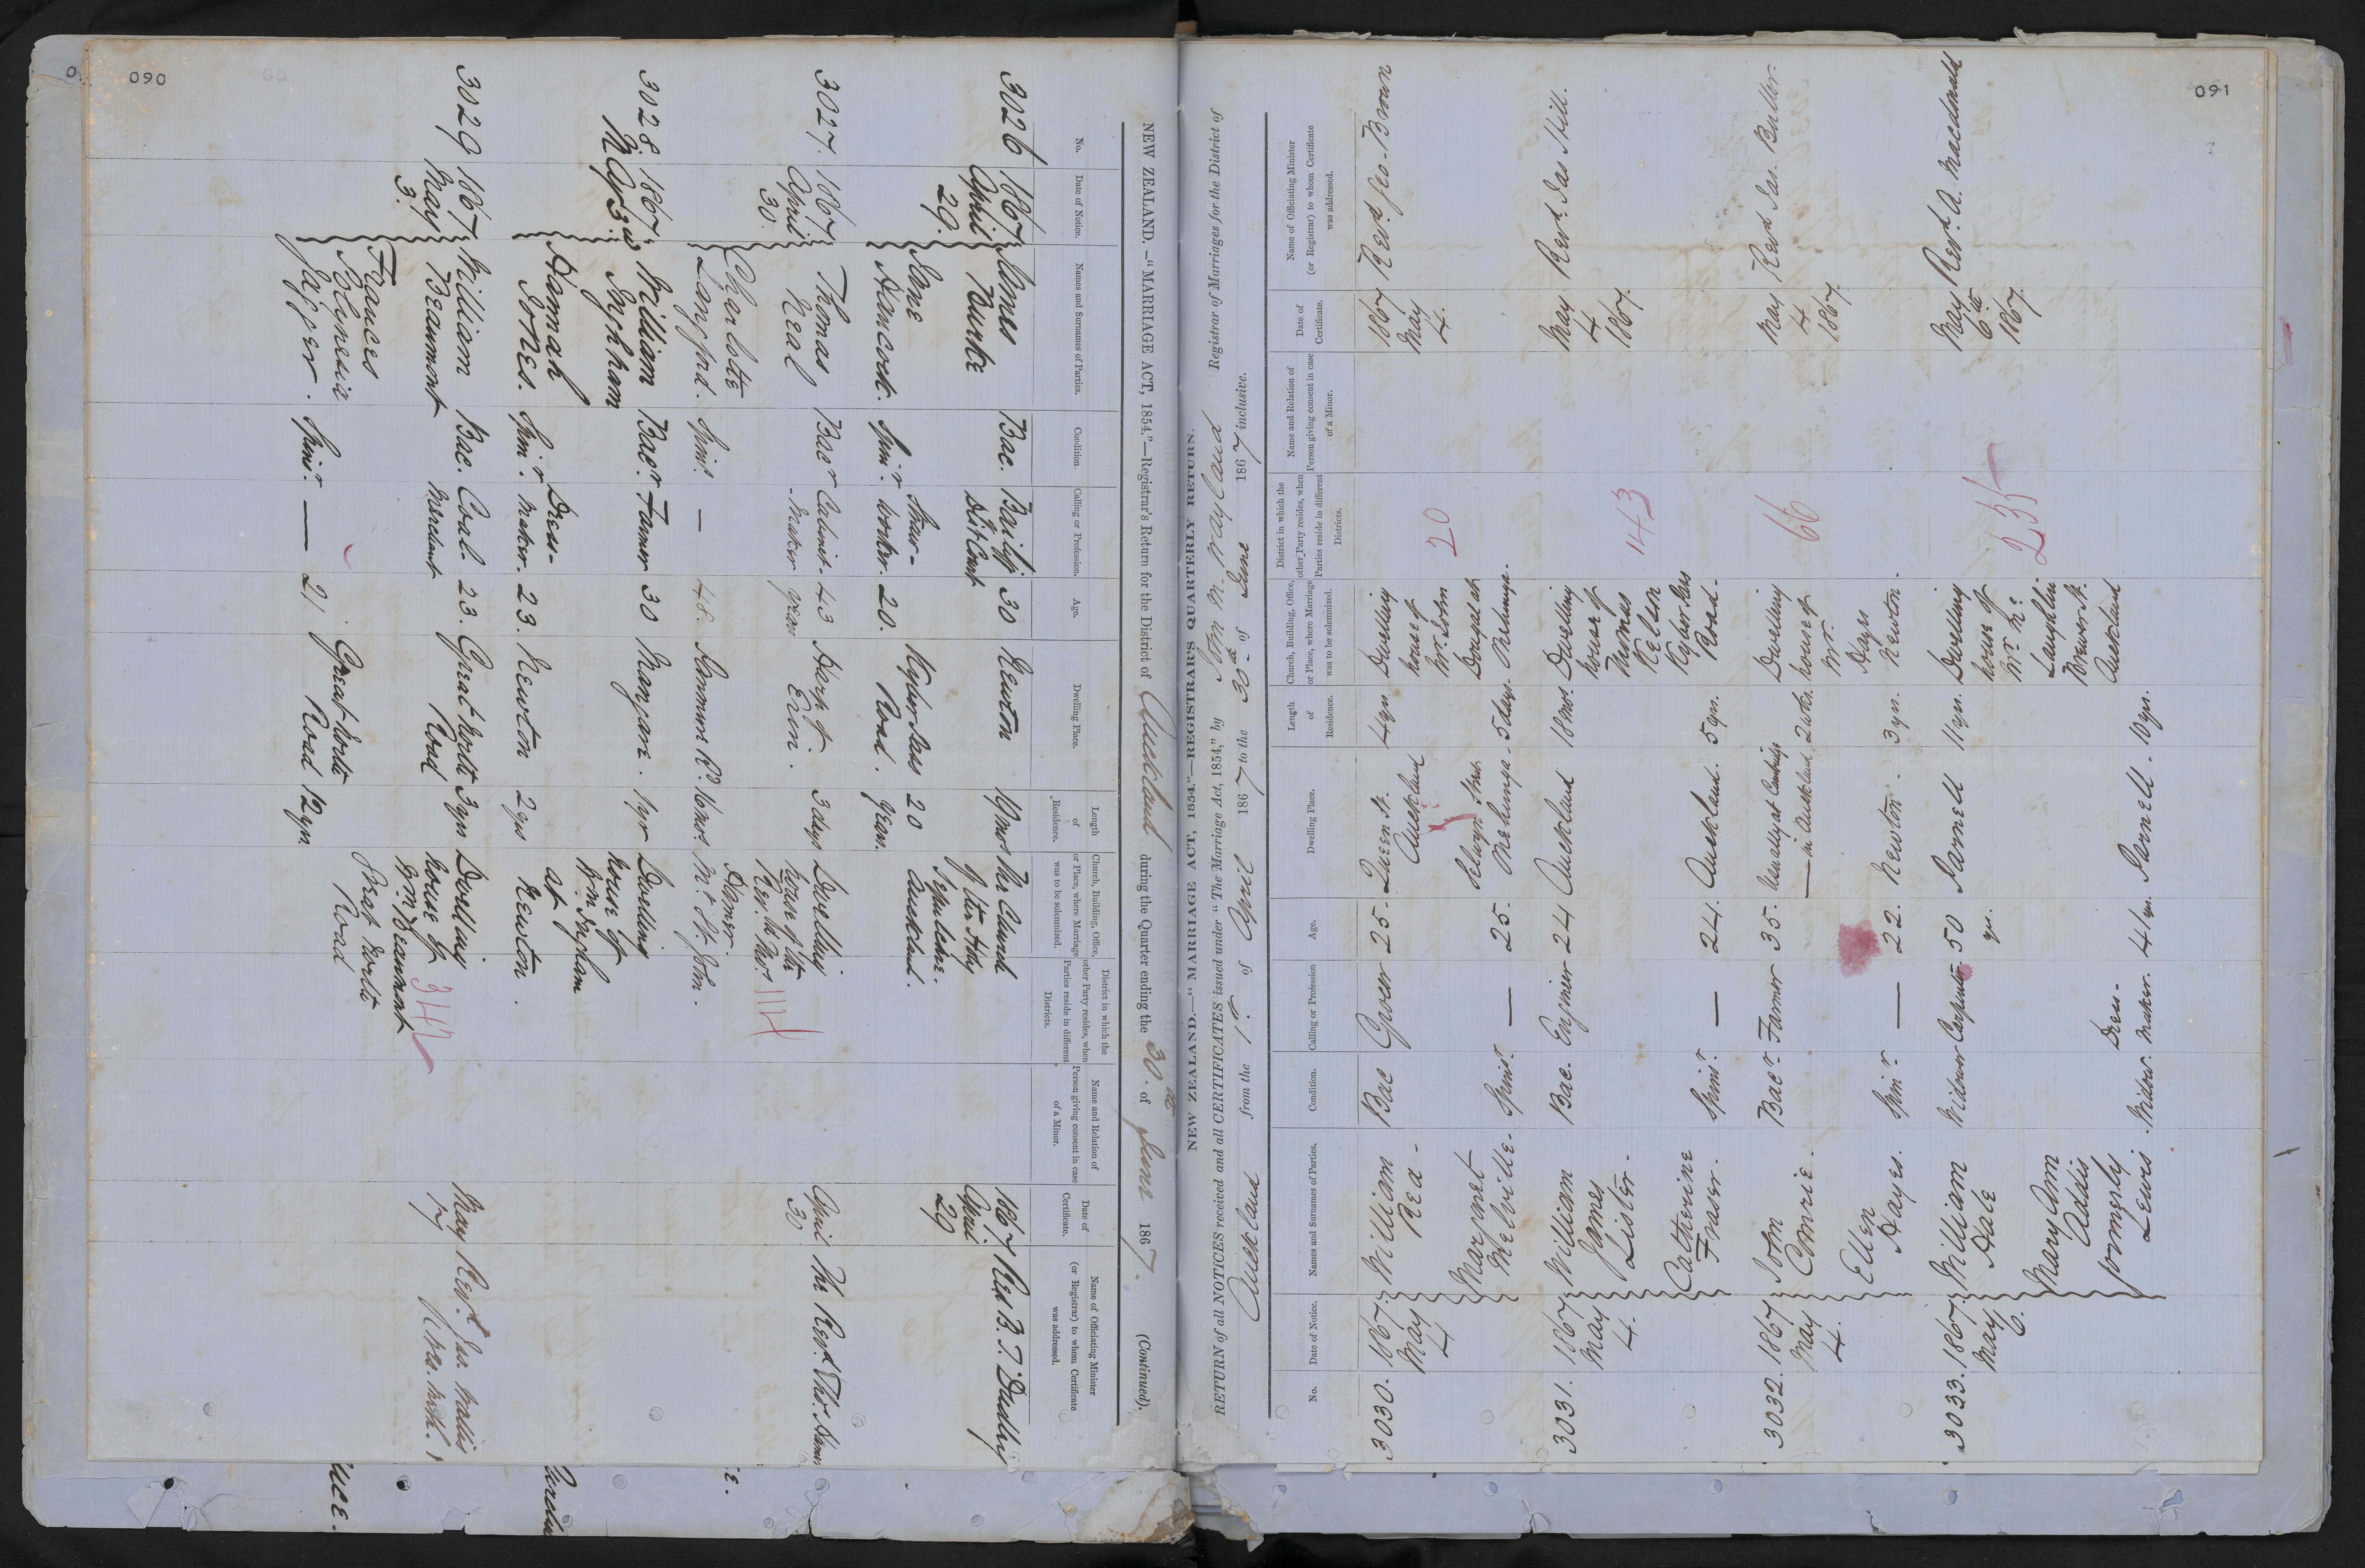 090
NEW ZEALAND.—"MARRIAGE ACT, 1854."—Registrar's Return for the District of Auckland during the Quarter ending the 30th of June 1867. (Continued).
No.
Date of Notice.
Names and Surnames of Parties.
Condition.
Calling or Profession.
Age.
Dwelling Place.
Length of Residence.
Church, Building, Office, or Place, where Marriage was to be solemnized.
District in which the other Party resides, when Parties reside in different Districts.
Name and Relation of Person giving consent in case of a Minor.
Date of Certificate.
Name of Officiating Minister (or Registrar) to whom Certificate was addressed.
3026 1867 April 29.
James Burke Bac. Bailiff Dist Court 30 Newton 19 mos
Jane Hancock. Spinr. Straw-worker. 20. Kyber Pass Road. 20 years.
The Church of the Holy Sepulchre. Auckland.
1867 April 29
Revd B. T. Dudley
3027. 1867 April 30.
Thomas Neal Bacr Cabinet-Maker 43 years Harp of Erin. 3 days
Charlotte Langford. Spinr. — 48. 16 mos.
Dwelling house of the Rev. Mt St John.
1114
April 30
The Revd. Thos. Hamer
3028. 1867. May 3rd
William Ingham Bacr. Farmer 30 Mangare. 1 yr
Hannah Jones. Spinr. Dress-maker. 23. Newton 2 yrs
Dwelling house of Wm Ingham at Newton.
3029 1867. May 3.
William Beaumont Bac. Coal Merchant 23. Great North Road 3 yrs
Frances Polynesia Jagger. Spinr. — 21 Great North Road 12 yrs.
Dwelling house of Wm Beaumont Great North Road
342
May 7
Revd. Jas. Wallis
091
NEW ZEALAND.—"MARRIAGE ACT, 1854."—REGISTRAR'S QUARTERLY RETURN.
RETURN of all NOTICES received and all CERTIFICATES issued under "The Marriage Act, 1854," by John N. Wayland Registrar of Marriages for the District of
Auckland from the 1st. of April 1867 to the 30th of June 1867 inclusive.
No.
Date of Notice.
Names and Surnames of Parties.
Condition.
Calling or Profession
Age.
Dwelling Place.
Length of Residence.
Church, Building, Office, or Place, where Marriage was to be solemnized.
District in which the other Party resides, when Parties reside in different Districts.
Name and Relation of Person giving consent in case of a Minor.
Date of Certificate.
Name of Officiating Minister (or Registrar) to whom Certificate was addressed.
3030. 1867. May 4
William Rea - Bac Grocer 25. Queen St. Auckland 4 yrs.
Margaret Melville. Spinsr. — 25. Selwyn Street Onehunga - 5 days.
Dwelling house of Mr. John Dougal at Onehunga.
20
1867 May 4.
Revd. Geo. Brown
3031. 1867 May 4.
William James Lister - Bac. Engineer 24 Auckland 18 mos.
Catherine Fraser. Spinsr. — 24. Auckland. 5 yrs.
Dwelling house of Thomas Nelson Kyber Pass Road.
143
May 4 1867.
Revd. Jas Hill.
3032. 1867 May 4.
John Comrie. Bacr. Farmer 35. Usually at — in Auckland 2 wks.
Ellen Hayes. Spinr — 22. Newton. 3 yrs.
Dwelling house of Mr. Hays Newton.
66
May 4 1867.
Revd Jas. Buller.
3033. 1867. May 6.
William Dale Widower Carpenter. 50 yrs. Parnell 11 yrs.
Mary Ann Addis formerly Lewis. Widow. Dress-maker. 41 yrs. Parnell. 10 yrs.
Dwelling house of Mr. Mc Laughlin Brewer St. Auckland
235
May 6th 1867.
Revd. A. Macdonald